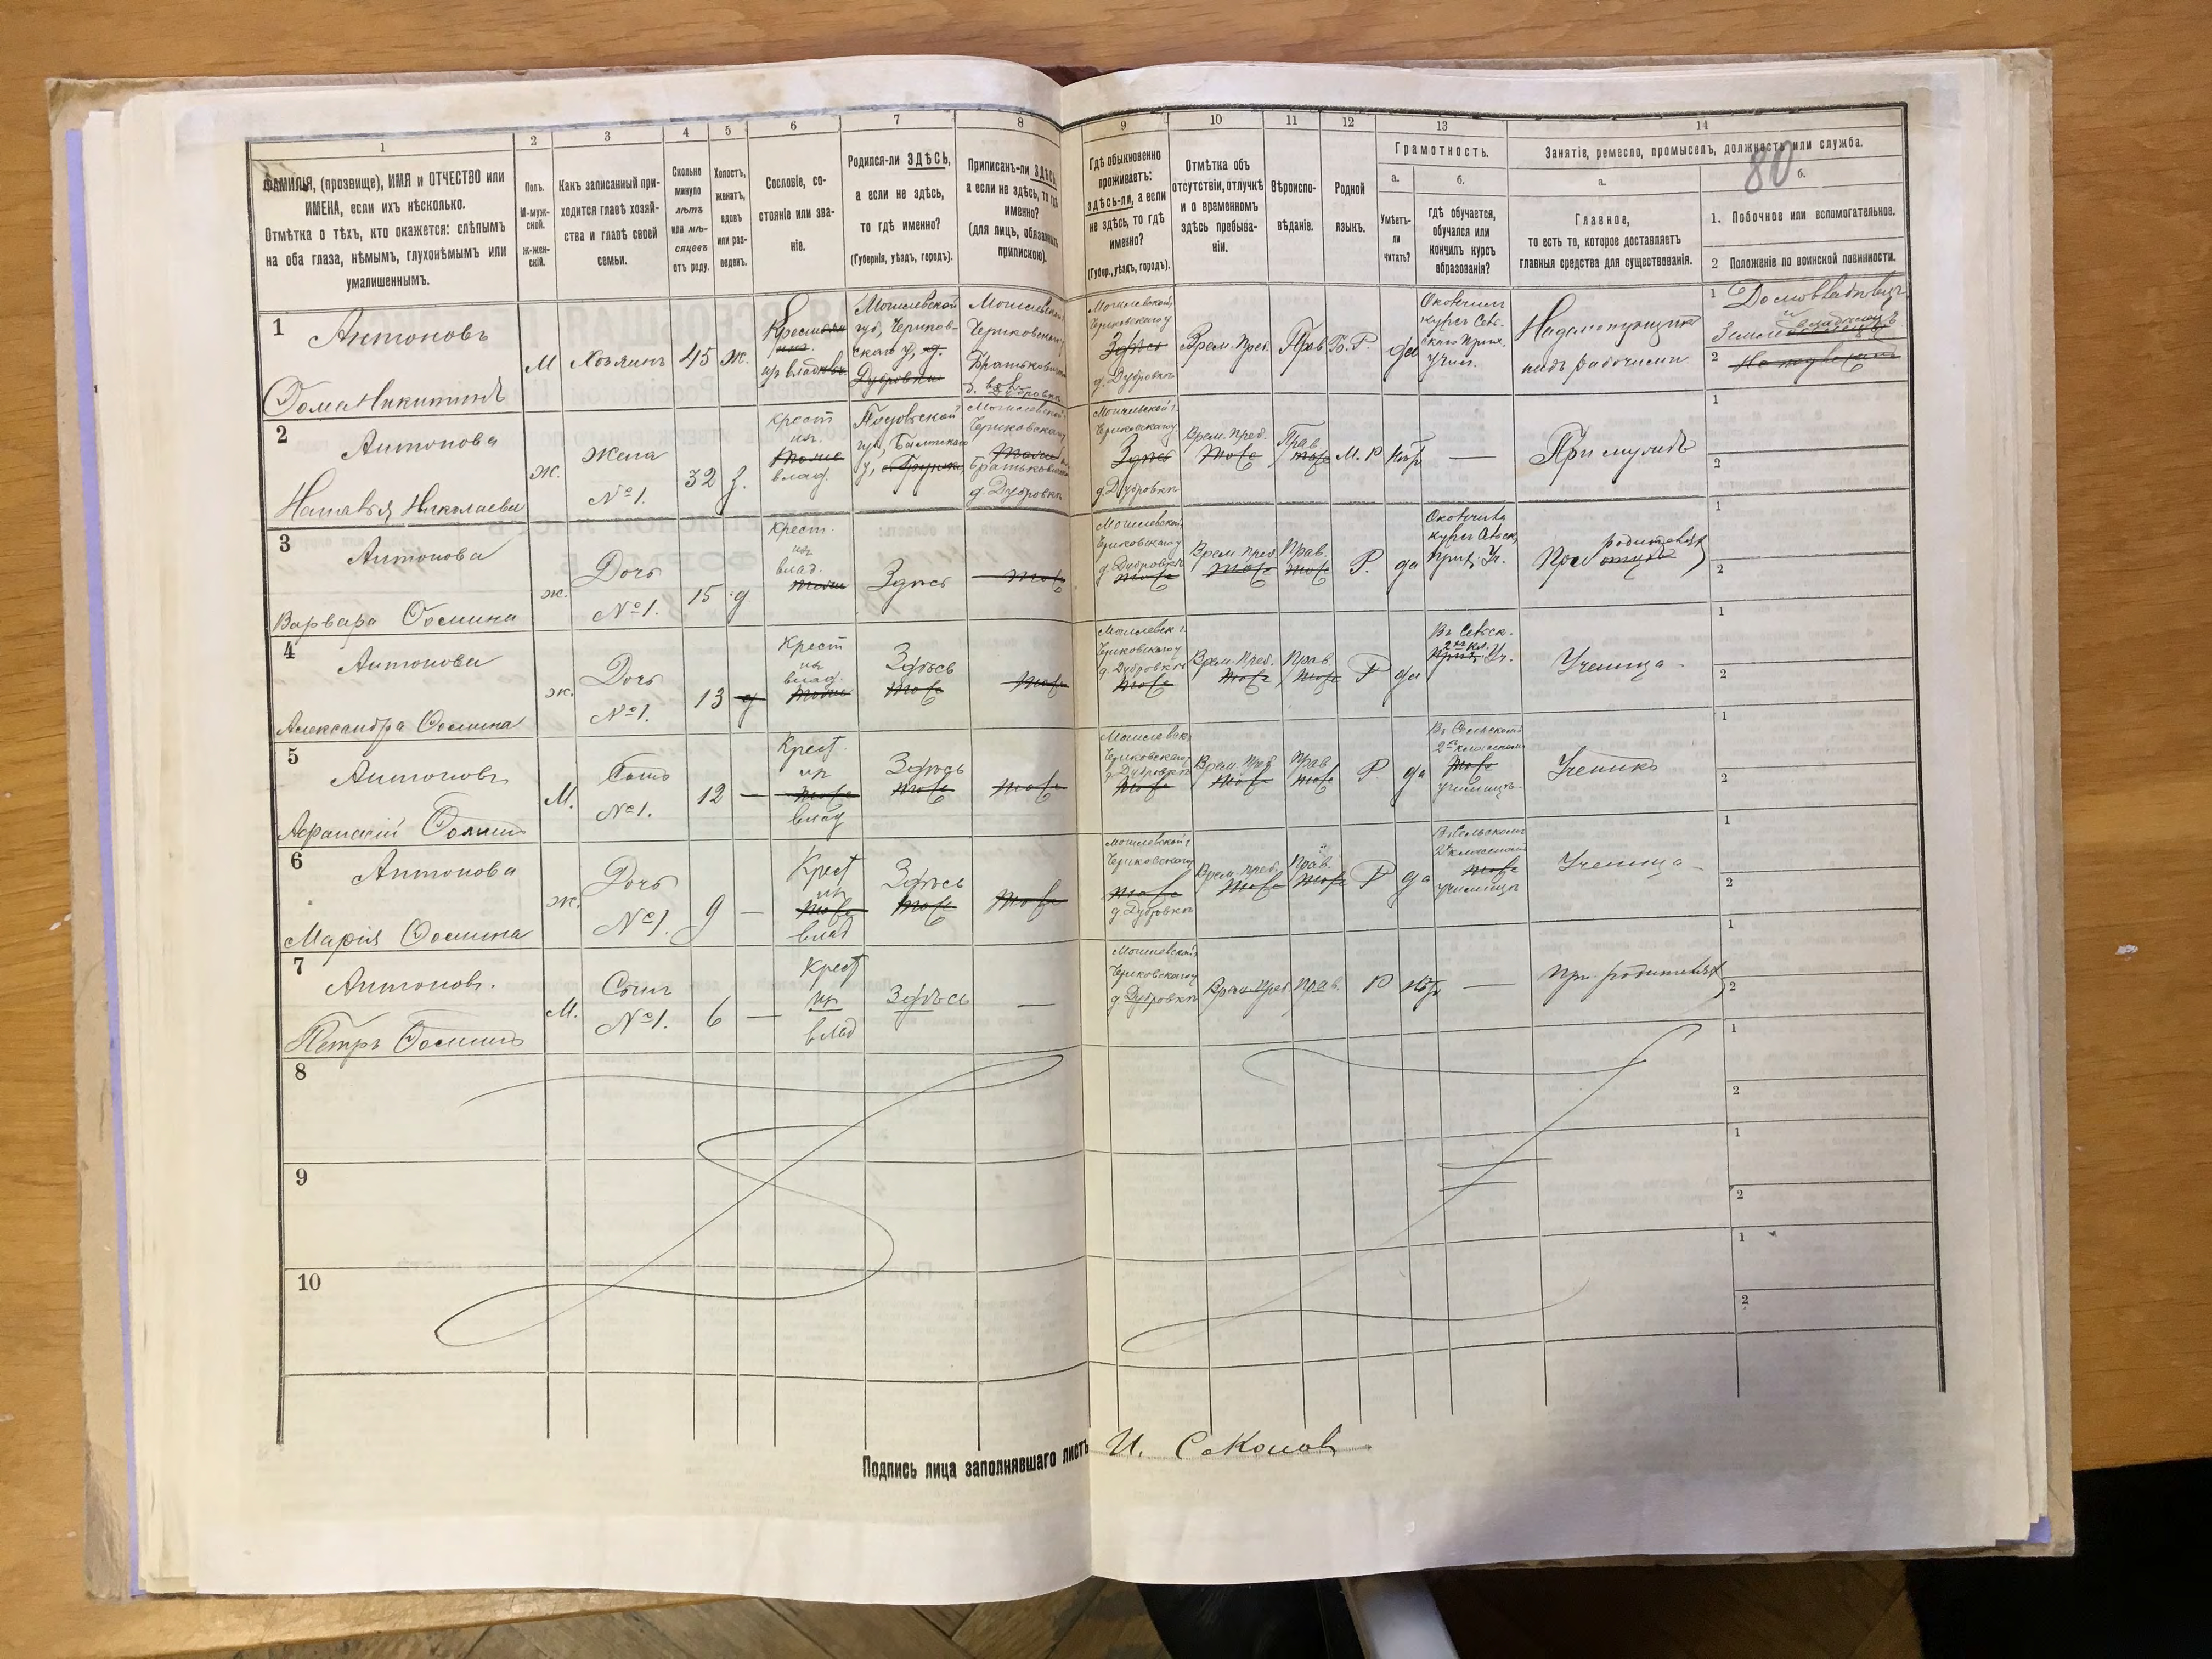 1
2
3
4
5
6
7
8
9
10
11
12
13
14
80
ФАМИЛІЯ, (прозвище), ИМЯ и ОТЧЕСТВО или
ИМЕНА, если ихъ нѣсколько.
Отмѣтка о тѣхъ, кто окажется: слѣпымъ
на оба глаза, нѣмымъ, глухонѣмымъ или
умалишеннымъ.
Полъ.
М-муж-
ской.
Ж-жен-
скій.
Какъ записанный при-
ходится главѣ хозяй-
ства и главѣ своей
семьи.
Сколько
минуло
лѣтъ
или мѣ-
сяцевъ
отъ роду.
Холостъ,
женатъ,
вдовъ
или раз-
веденъ.
Сословіе, со-
стояніе или зва-
ніе.
Родился-ли ЗДѢСЬ,
а если не здѣсь,
то гдѣ именно?
(Губернія, уѣздъ, городъ).
Приписанъ-ли ЗДѢСЬ,
а если не здѣсь, то гдѣ
именно?
(для лицъ, обязанныхъ
припискою).
Гдѣ обыкновенно
проживаетъ:
здѣсь-ли, а если
не здѣсь, то гдѣ
именно?
(Губер., уѣздъ, городъ).
Отмѣтка объ
отсутствіи, отлучкѣ
и о временномъ
здѣсь пребыва-
ніи.
Вѣроиспо-
вѣданіе.
Родной
языкъ.
Грамотность.
а.
Умѣетъ-
ли
читать?
б.
гдѣ обучается,
обучался или
кончилъ курсъ
образованія?
Занятіе, ремесло, промыселъ, должность или служба.
а.
Главное,
то есть то, которое доставляетъ
главныя средства для существованія.
б.
1. Побочное или вспомогательное.
2 Положеніе по воинской повинности.
1
Антоновъ
Ѳома Никитинъ
М
Хозяинъ
45
ж.
Крестьян
изъ влад
Могилевской
губ, Чериков-
скаго у, д.
Дубровки
Могилевской
Чериковскаго
д. Дубровка
Могилевской
Чериковскаго у
Здѣсь
д. Дубровкѣ
Врем. Преб.
Прав
Б. Р.
да
Окончилъ
курсъ Сель-
скаго Прих.
Учил.
Надсмотрщикъ
надъ рабочими
1 Домовладѣлецъ
и
2
2
Антонова
Наталья Николаева
ж.
Жена
№ 1.
32
з.
крест
изъ
тоже
влад.
Подольской
губ, Балтскаго
у,
Могилевской
Чериковскаго
д. Дубровкѣ
Могилевской г.
Чериковскаго у
Здѣсь
д. Дубровкѣ
Врем. преб.
тоже
Прав
тоже
М. Р
нѣтъ
—
При мужѣ
1
2
3
Антонова
Варвара Ѳомина
ж.
Дочь
№ 1.
15
д
крест.
изъ
влад.
тоже
Здѣсь
тоже
Могилевской
Чериковскаго у
д. Дубровкѣ
тоже
Врем преб
тоже
Прав.
тоже
Р.
да
Окончила
курсъ Сельск.
Прих. Уч.
При отцѣ
родителяхъ
1
2
4
Антонова
Александра Ѳомина
ж.
Дочь
№ 1.
13
д
Крест
изъ
влад.
тоже
Здѣсь
тоже
тоже
Могилевск г.
Чериковскаго у
д. Дубровкѣ
тоже
Врем. Преб.
тоже
Прав.
тоже
Р
да
Въ Сельск.
2хъ кл.
Прих. Уч.
Ученица
1
2
5
Антоновъ
Афанасій Ѳоминъ
М.
Сынъ
№ 1.
12
—
Крест.
из
тоже
влад
Здѣсь
тоже
тоже
Могилевск
Чериковскаго
д Дубровкѣ
тоже
Врем. Преб
тоже
Прав.
тоже
Р
да
Въ Сельскомъ
2хъ классномъ
тоже
училищѣ
Ученикъ
1
2
6
Антонова
Марія Ѳомина
ж.
Дочь
№ 1.
9
—
Крест
из
тоже
влад
Здѣсь
тоже
тоже
Могилевской г
Чериковскаго у
тоже
д. Дубровкѣ
Врем. преб.
тоже
Прав.
тоже
Р
да
Въ Сельскомъ
2хъ классномъ
тоже
училищѣ
Ученица
1
2
7
Антоновъ.
Петръ Ѳоминъ
М.
Сынъ
№ 1.
6
—
Крест
из
влад
Здѣсь
—
Могилевской
Чериковскаго у
д Дубровкѣ
Врем Преб
Прав.
Р
нѣтъ
—
При родителяхъ
1
2
8
1
2
9
1
2
10
1
2
Подпись лица заполнявшаго листъ И. Соколовъ